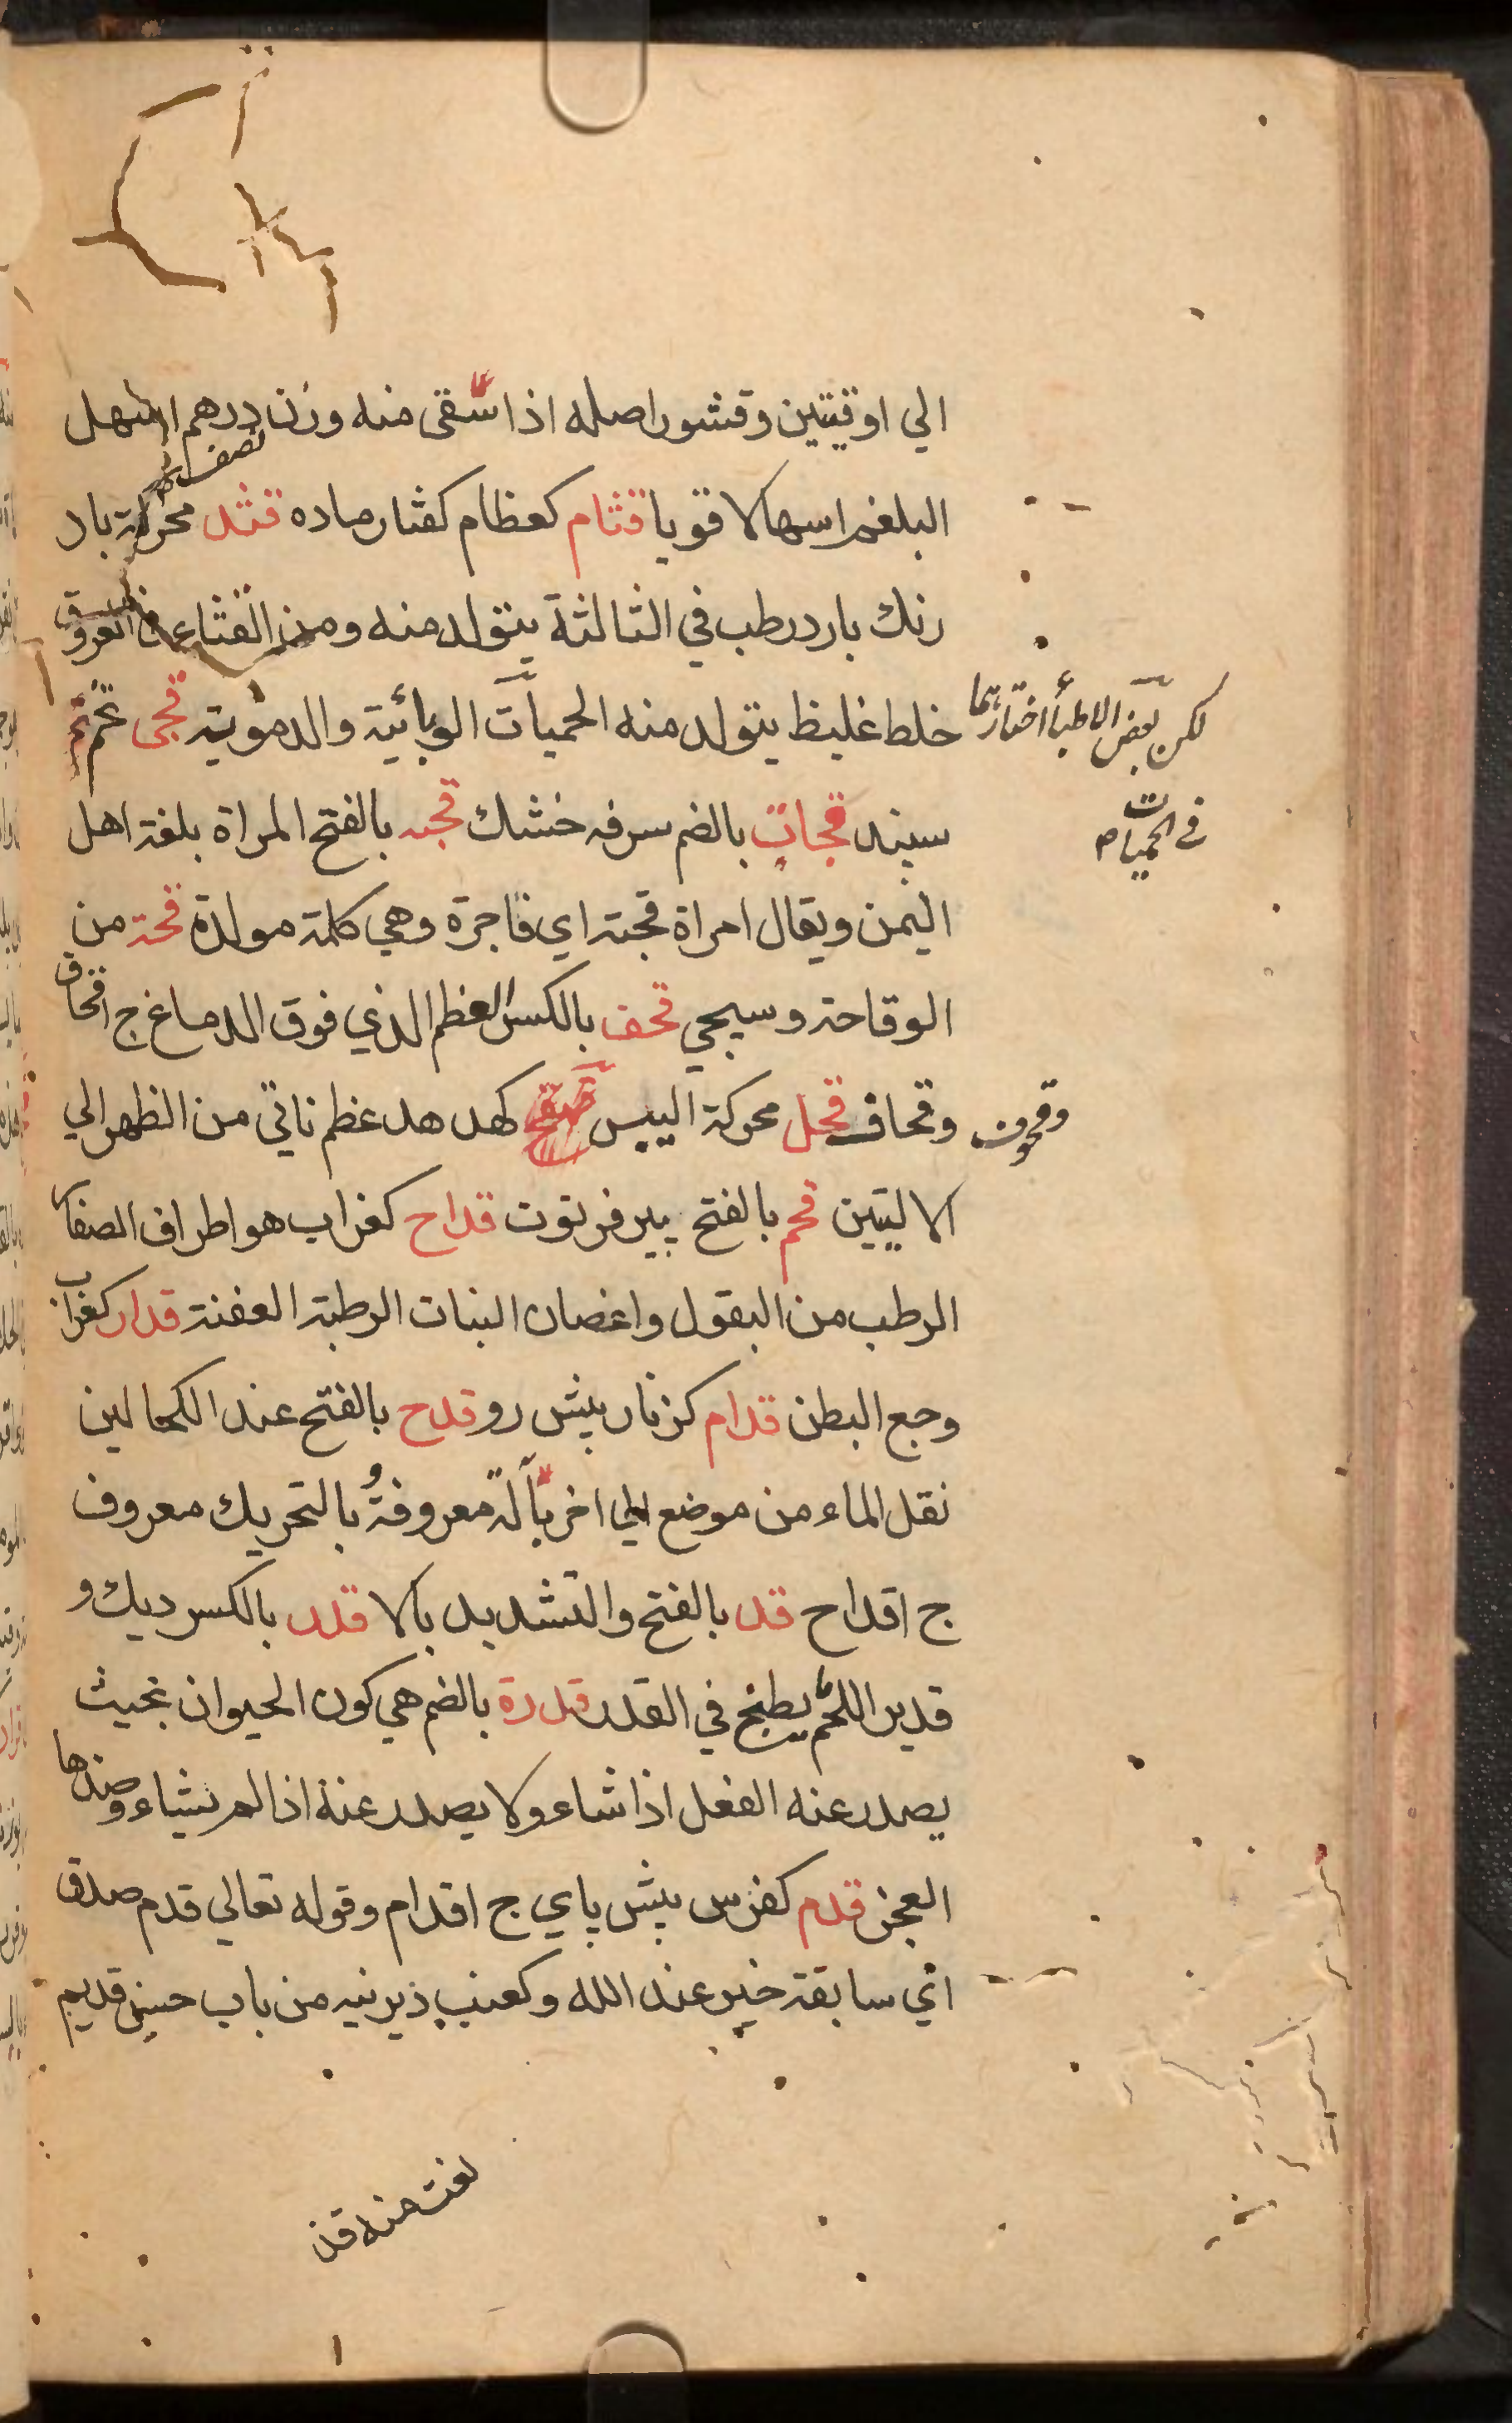 الي اوقيتين وقشور اصله اذا سقى منه وزن درهم اسهل
نصف
البلغم اسهالا قويا قثام كعظام كفتار ماده قثد محركة باد
رنك بارد رطب في الثالثة يتولد منه ومن القثاء في العروق
خلط غليظ يتولد منه الحميات الوبائية والدموية قجى تخم
لكن بعض الاطبأ اختارتهما
في الحميات
سپند قحاب بالضم سرفه خشك قحبه بالفتح المراة بلغة اهل
اليمن ويقال امراة قحبة اي فاجرة وهي كلمة مولدة قحة من
الوقاحة وسيجي قحف بالكسر العظم الذي فوق الدماغ ج اقحاف
وقحوف
وقحاف قحل محركة اليبس كهدهد عظم ناتي من الظهر الي
الاليتين قحم بالفتح پير فرتوت قداح كغراب هو اطراف الصفا
الرطب من البقول واغصان النبات الرطبة العفنة قدار كغراب
وجع البطن قدام كزنار پيش رو قدح بالفتح عند الكحالين
نقل الماء من موضع الي اخر بآلة معروفة و بالتحريك معروف
ج اقداح قد بالفتح والتشديد بالا قدر بالكسر ديك و
قدير اللحم يطبخ في القدر قدرة بالضم هي كون الحيوان بحيث
يصدر عنه الفعل اذا شاء ولا يصدر عنه اذا لم يشاء وضدها
العجز قدم كفرس پيش پاي ج اقدام وقوله تعالي قدم صدق
اي سابقة خير عند الله وكعنب ديرينه من باب حسن قديم
نعت منه قذ